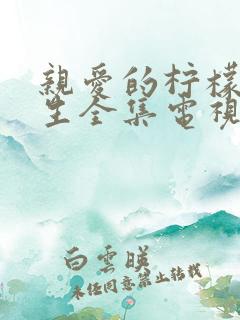 親愛的柠檬
生全集電視
白雲暎
未任同意禁止转载